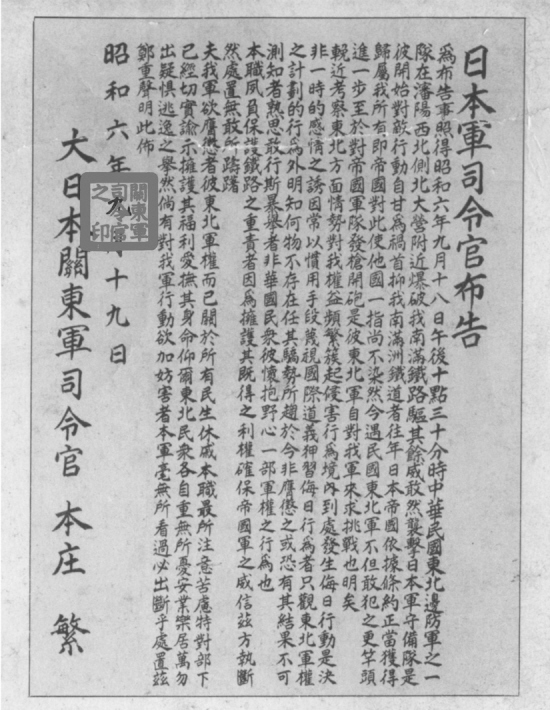 日本軍司令官布告
為布告事照得昭和六年九月十八日午後十點三十分時中華民國東北邊防軍之一
隊在瀋陽西北側北大營附近爆破我南滿鐵路驅其餘威敢然襲擊日本軍守備隊是
彼開始對敵行動自甘為禍首抑我南滿洲鐵道者往年日本帝國依據條約正當獲得
歸屬我所有即帝國對此使他國一指尚不染然今遇民國東北軍不但敢犯之更竿頭
進一步至於對帝國軍隊發槍開砲是彼東北軍自對我軍來求挑戰也明矣
輓近考察東北方面情勢對我權益頻繁簇起侵害行為境內到處發生侮日行動是決
非一時的感情之誘因常以慣用手段蔑視國際道義狎習侮日行為者只觀東北軍權
之計劃的行為外明知何物不存在任其驕勢所趨於今非膺懲之或恐有其結果不可
測知者熟思敢行斯暴舉者非華國民衆彼懷抱野心一部軍權之行為也
本職夙負保護鐵路之重責者因為擁護其既得之利權確保帝國軍之威信茲方執斷
然處置無敢所躊躇
夫我軍欲膺懲者彼東北軍權而已關於所有民生休戚本職最所注意苦慮特對部下
已經切實諭示擁護其福利愛撫其身命仰爾東北民衆各自重無所憂安業樂居萬勿
出疑惧逃逸之舉然倘有對我軍行動欲加妨害者本軍毫無所看過必出斷乎處置茲
鄭重聲明此佈
昭和六年九月十九日
關東軍司令官之印
大日本關東軍司令官 本庄 繁